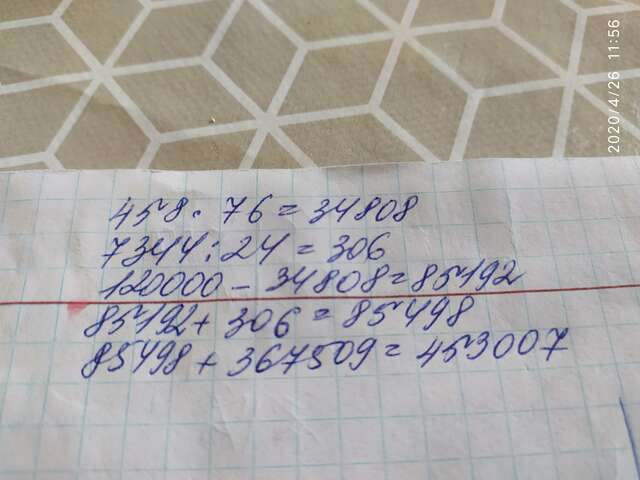 458 · 76 = 34808
7344 : 24 = 306
120000 - 34808 = 85192
85192 + 306 = 85498
85498 + 367509 = 453007
2020/4/26 11:56